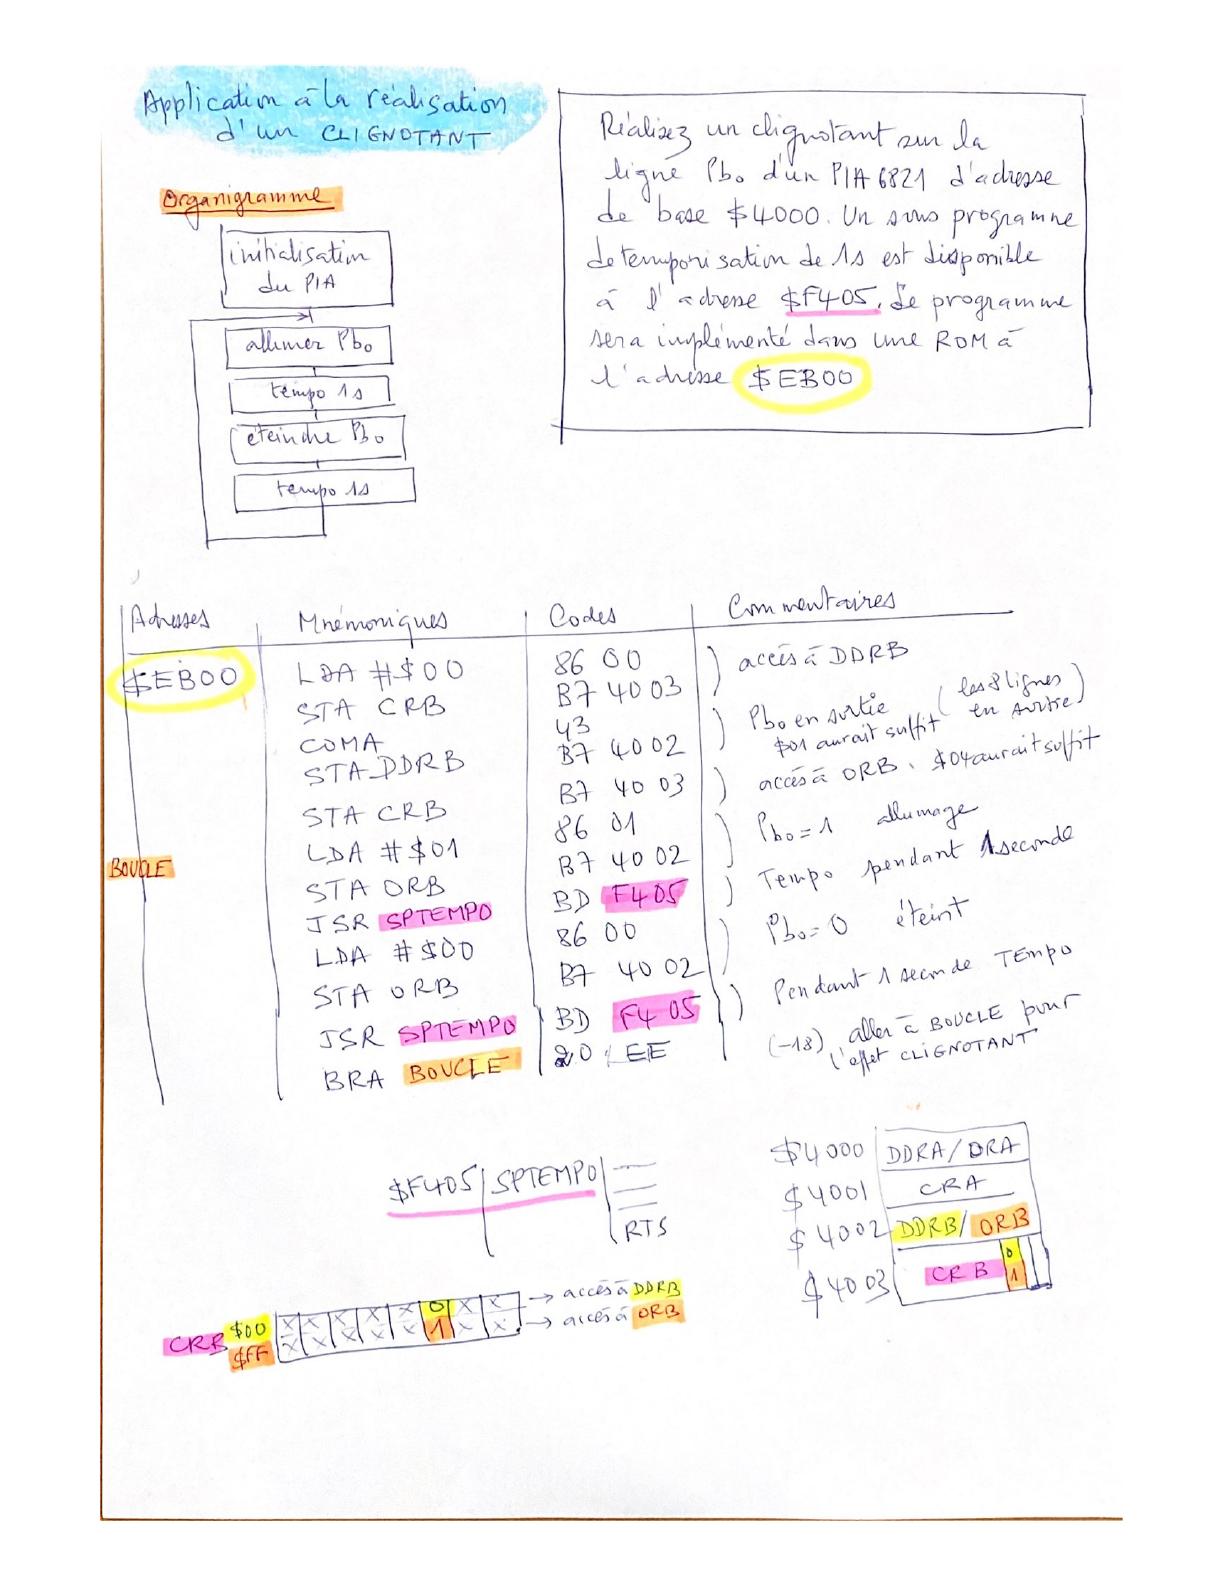 Application à la réalisation
d'un CLIGNOTANT
Organigramme
initialisation
du PIA
allumer Pb0
tempo 1s
éteindre Pb0
tempo 1s
Réalisez un clignotant sur la
ligne Pb0 d'un PIA 6821 d'adresse
de base $4000. Un sous programme
de temporisation de 1s est disponible
à l'adresse $F405. Le programme
sera implémenté dans une ROM à
l'adresse $EB00
Adresses Mnémoniques Codes Commentaires
$EB00 LDA #$00 86 00 ) accès à DDRB
STA CRB B7 4003
COMA 43 ) Pb0 en sortie (les 8 lignes en sortie)
STA DDRB B7 4002 $01 aurait suffit
STA CRB B7 40 03 ) accès à ORB. $04 aurait suffit
BOUCLE LDA #$01 86 01 ) Pb0 = 1 allumage
STA ORB B7 40 02
JSR SPTEMPO BD F405 ) Tempo pendant 1 seconde
LDA #$00 86 00 ) Pb0 = 0 éteint
STA ORB B7 40 02
JSR SPTEMPO BD F405 ) Pendant 1 seconde TEmpo
BRA BOUCLE 20 EE (-18) aller à BOUCLE pour
l'effet CLIGNOTANT
$F405 SPTEMPO
RTS
$4000 DDRA/ORA
$4001 CRA
$4002 DDRB/ORB
0
$4003 CRB 1
CRB $00 X X X X X 0 X X → accès à DDRB
$FF X X X X X 1 X X → accès à ORB